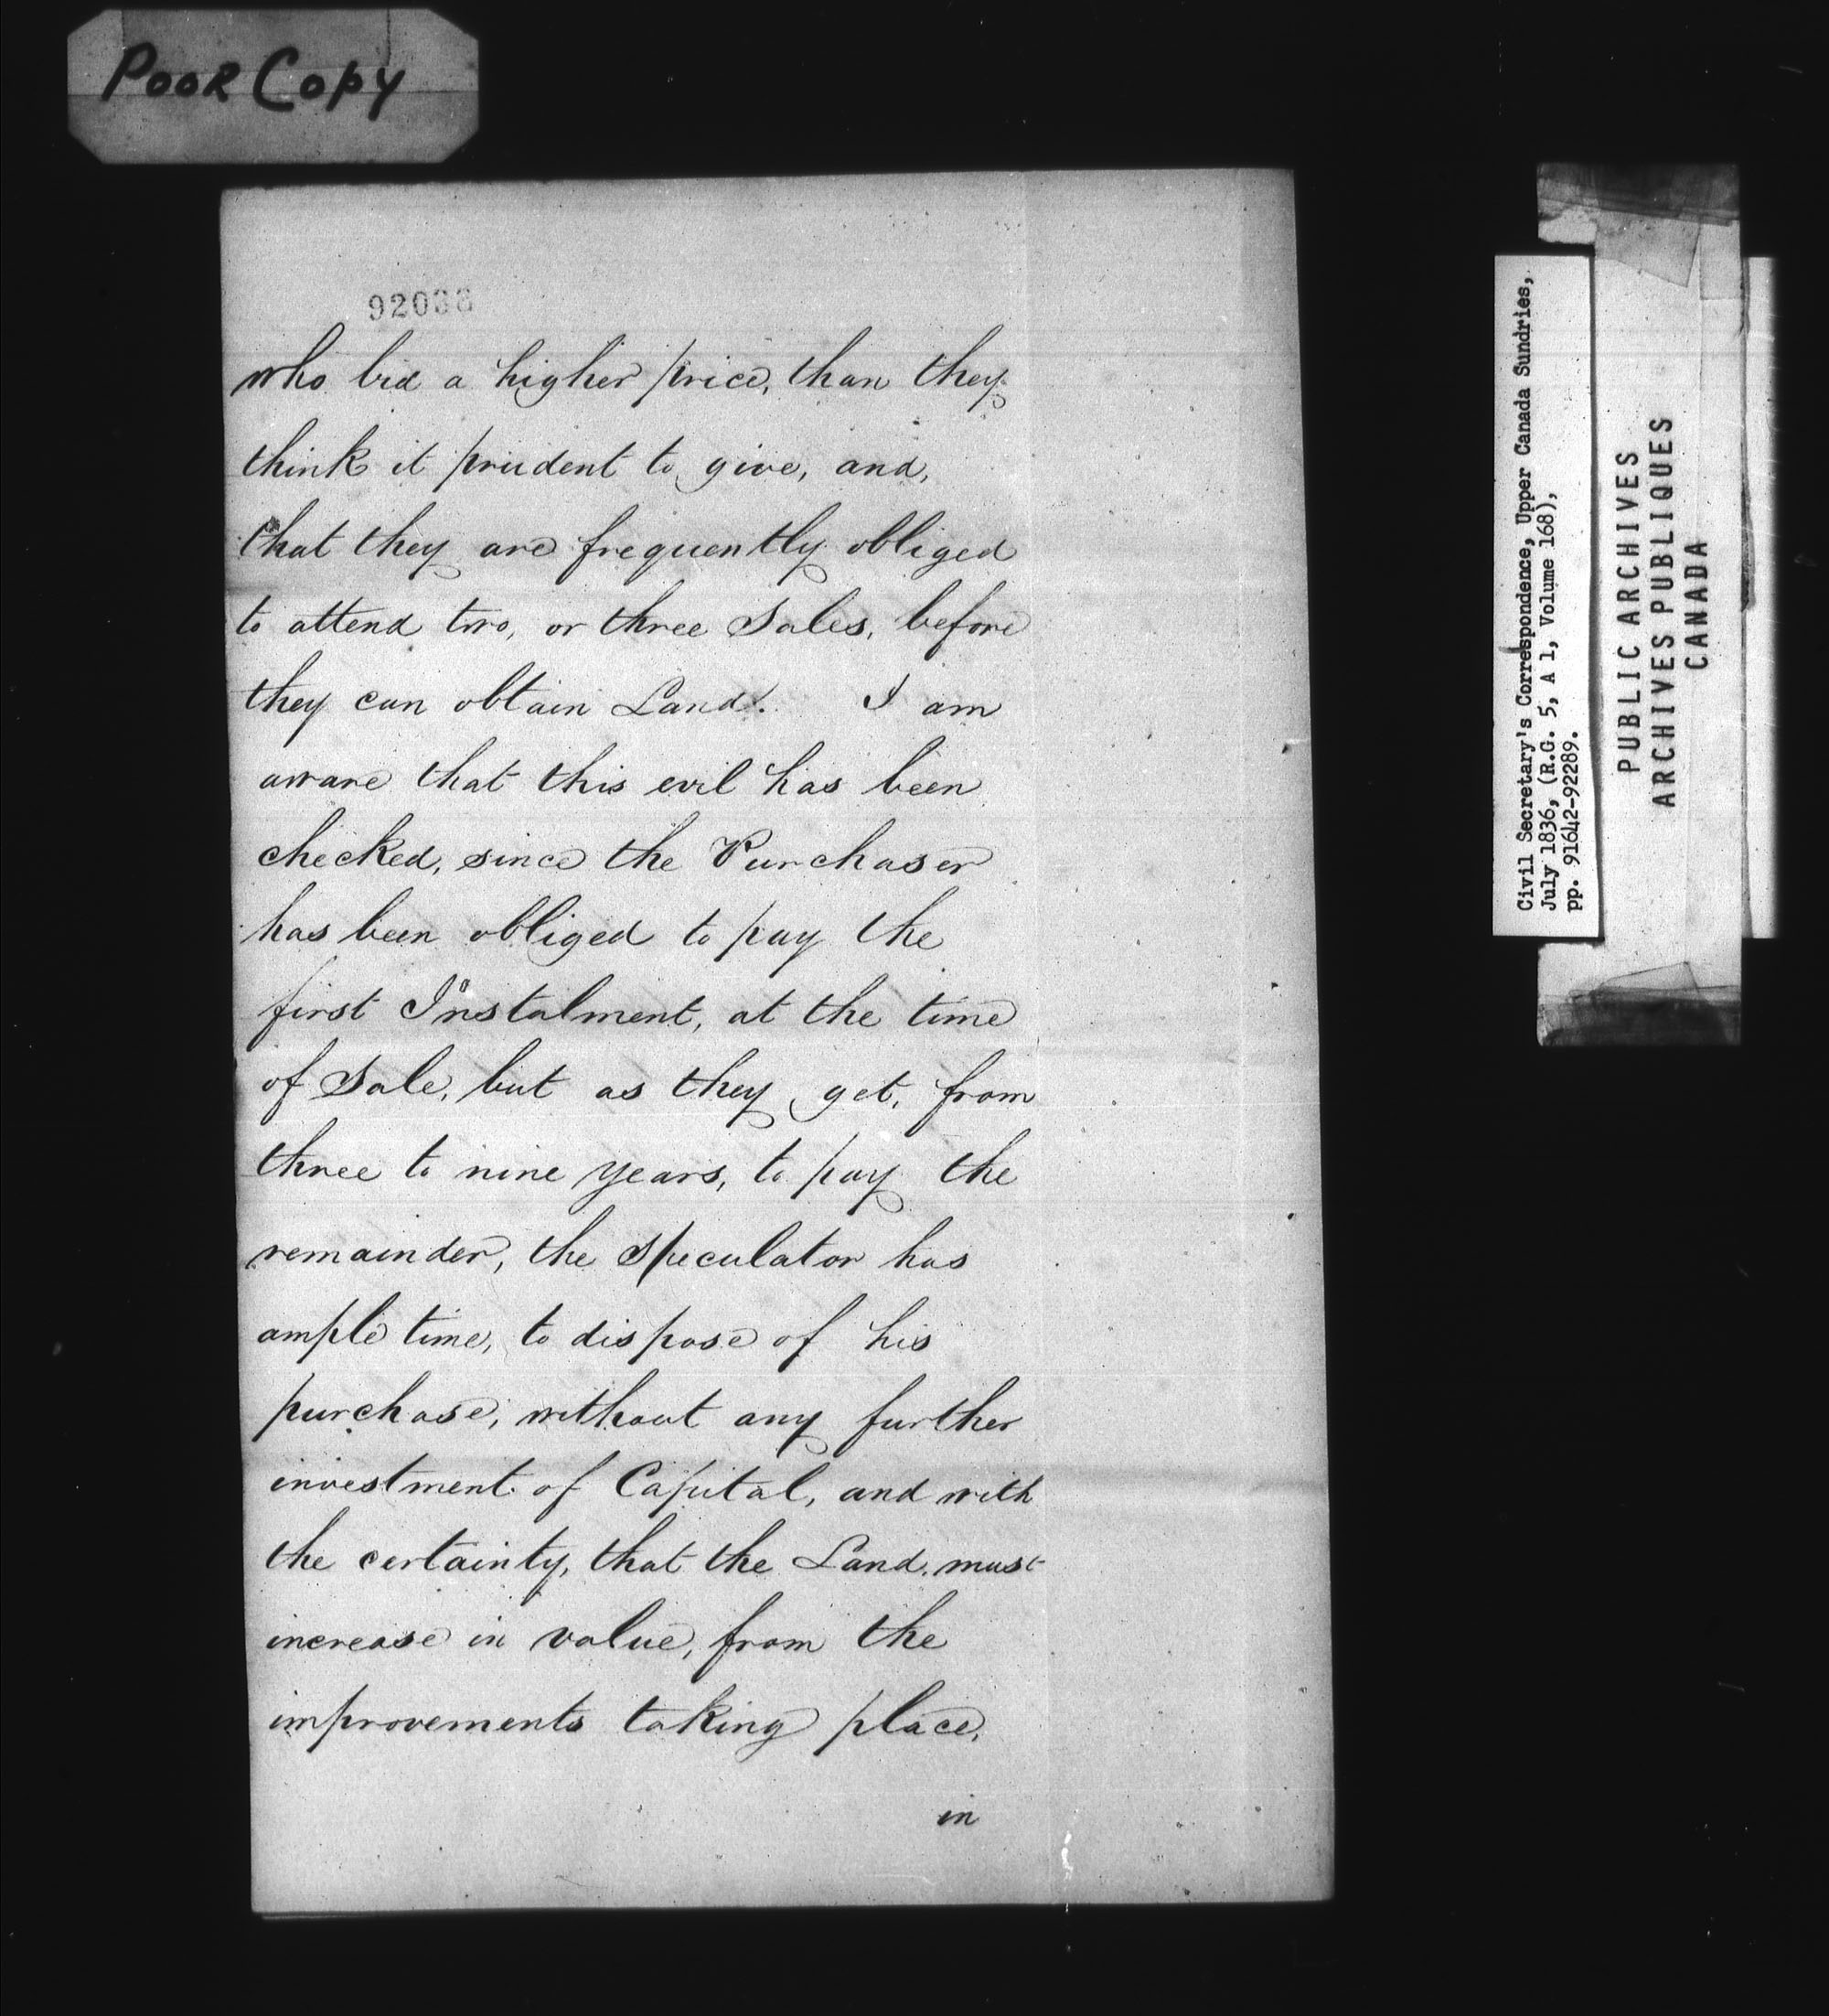 Poor Copy
92038
who bid a higher price, than they
think it prudent to give, and,
that they are frequently obliged
to attend two, or three Sales, before
they can obtain Land. I am
aware that this evil has been
checked, since the Purchaser
has been obliged to pay the
first Instalment, at the time
of Sale, but as they get, from
three to nine years, to pay the
remainder, the Speculator has
ample time, to dispose of his
purchase, without any further
investment of Capital, and with
the certainty, that the Land, must
increase in value, from the
improvements taking place,
in
Civil Secretary's Correspondence, Upper Canada Sundries,
July 1836, (R.G. 5, A 1, Volume 168),
pp. 91642-92289.
PUBLIC ARCHIVES
ARCHIVES PUBLIQUES
CANADA